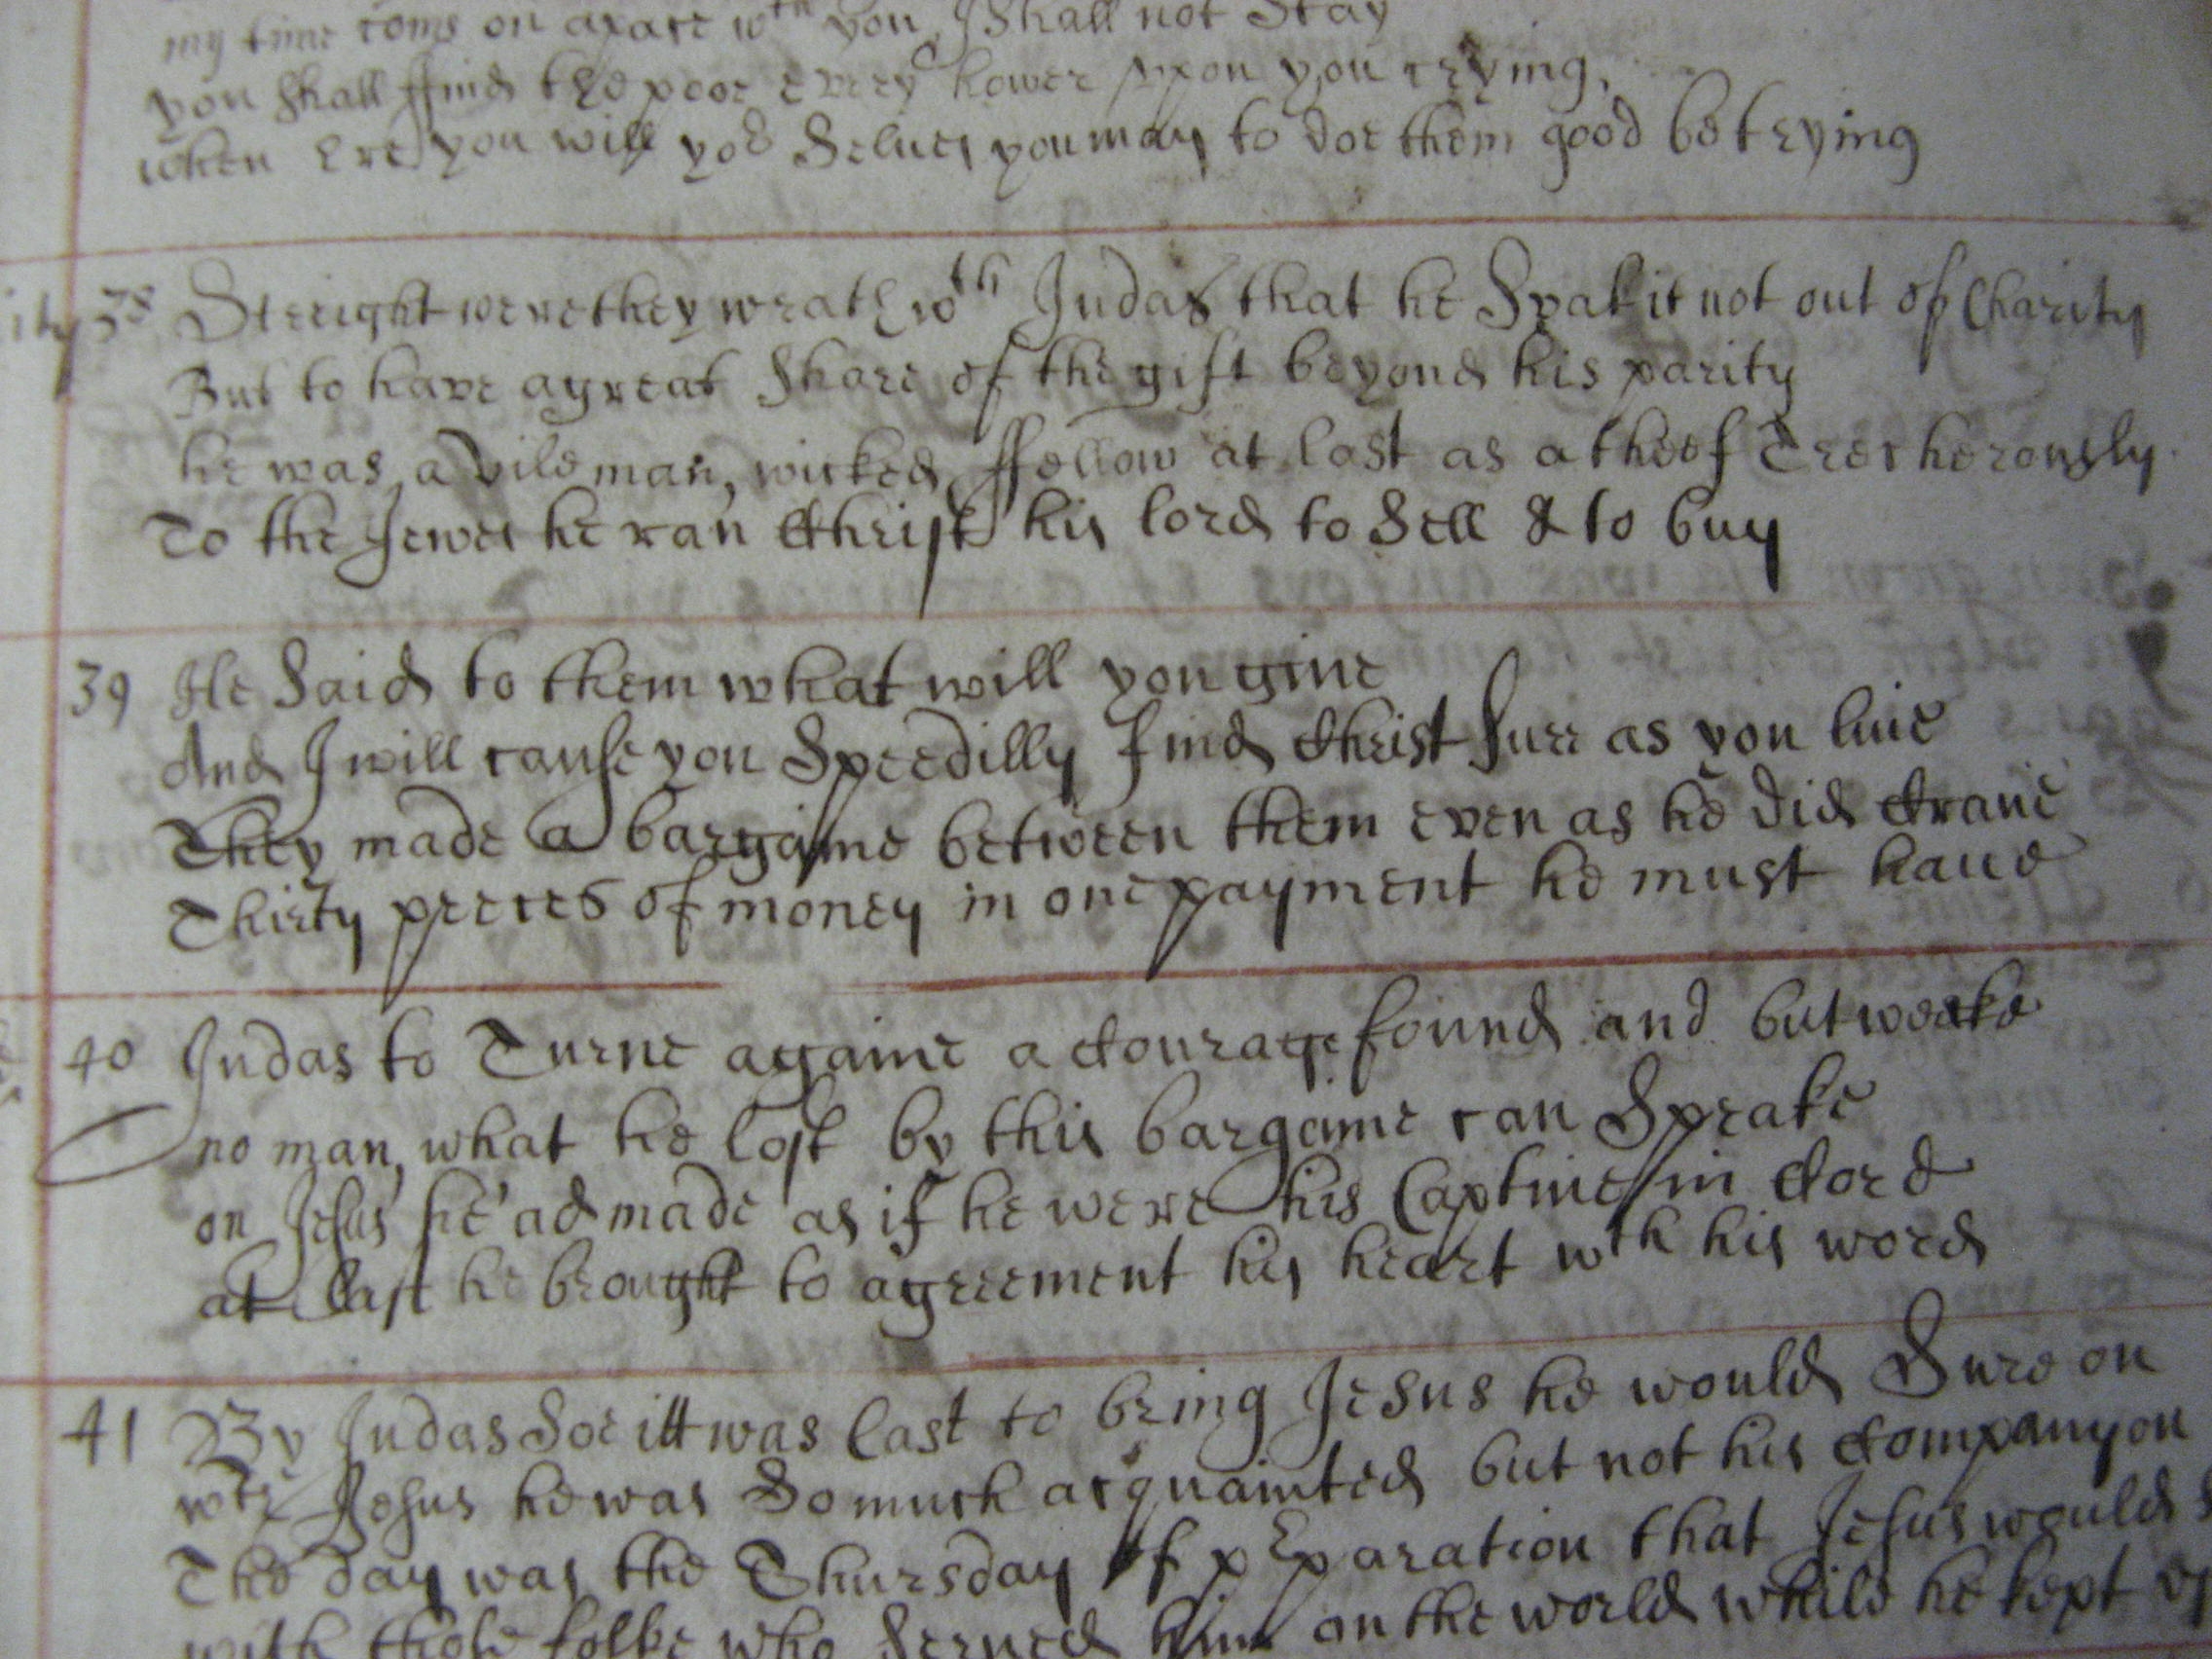 my time coms on apace wth you, I Shall not Stay
you Shall ffind the poor every hower vpon you crying,
when ere you will yor Selues you may to doe them good be trying
ity 38 Streight were they wrath wth Judas that he Spak it not out of Charity
But to have a great Share of the gift beyond his parity
he was a Vile man, wicked ffellow at last as a theef Trecherously.
To the Jewes he ran Christ his lord to Sell & to buy
39 He Said to them what will you giue
And I will cause you Speedilly find Christ Sure as you liue
They made a bargaine between them even as he did Craue
Thirty peeces of money in one payment he must haue
40 Judas to Turne againe a Courage found and but weake
no man, what he lost by this bargaine can Speake
on Jesus he'ad made as if he were his Captiue in Cord
at last he brought to agreement his heart wth his word
41 By Judas Soe itt was last to bring Jesus he would Sure on
wth Jesus he was So much acquainted but not his Companyon
The day was the Thursday of pEparation that Jesus would
with those folke who Serued him on the world while he kept